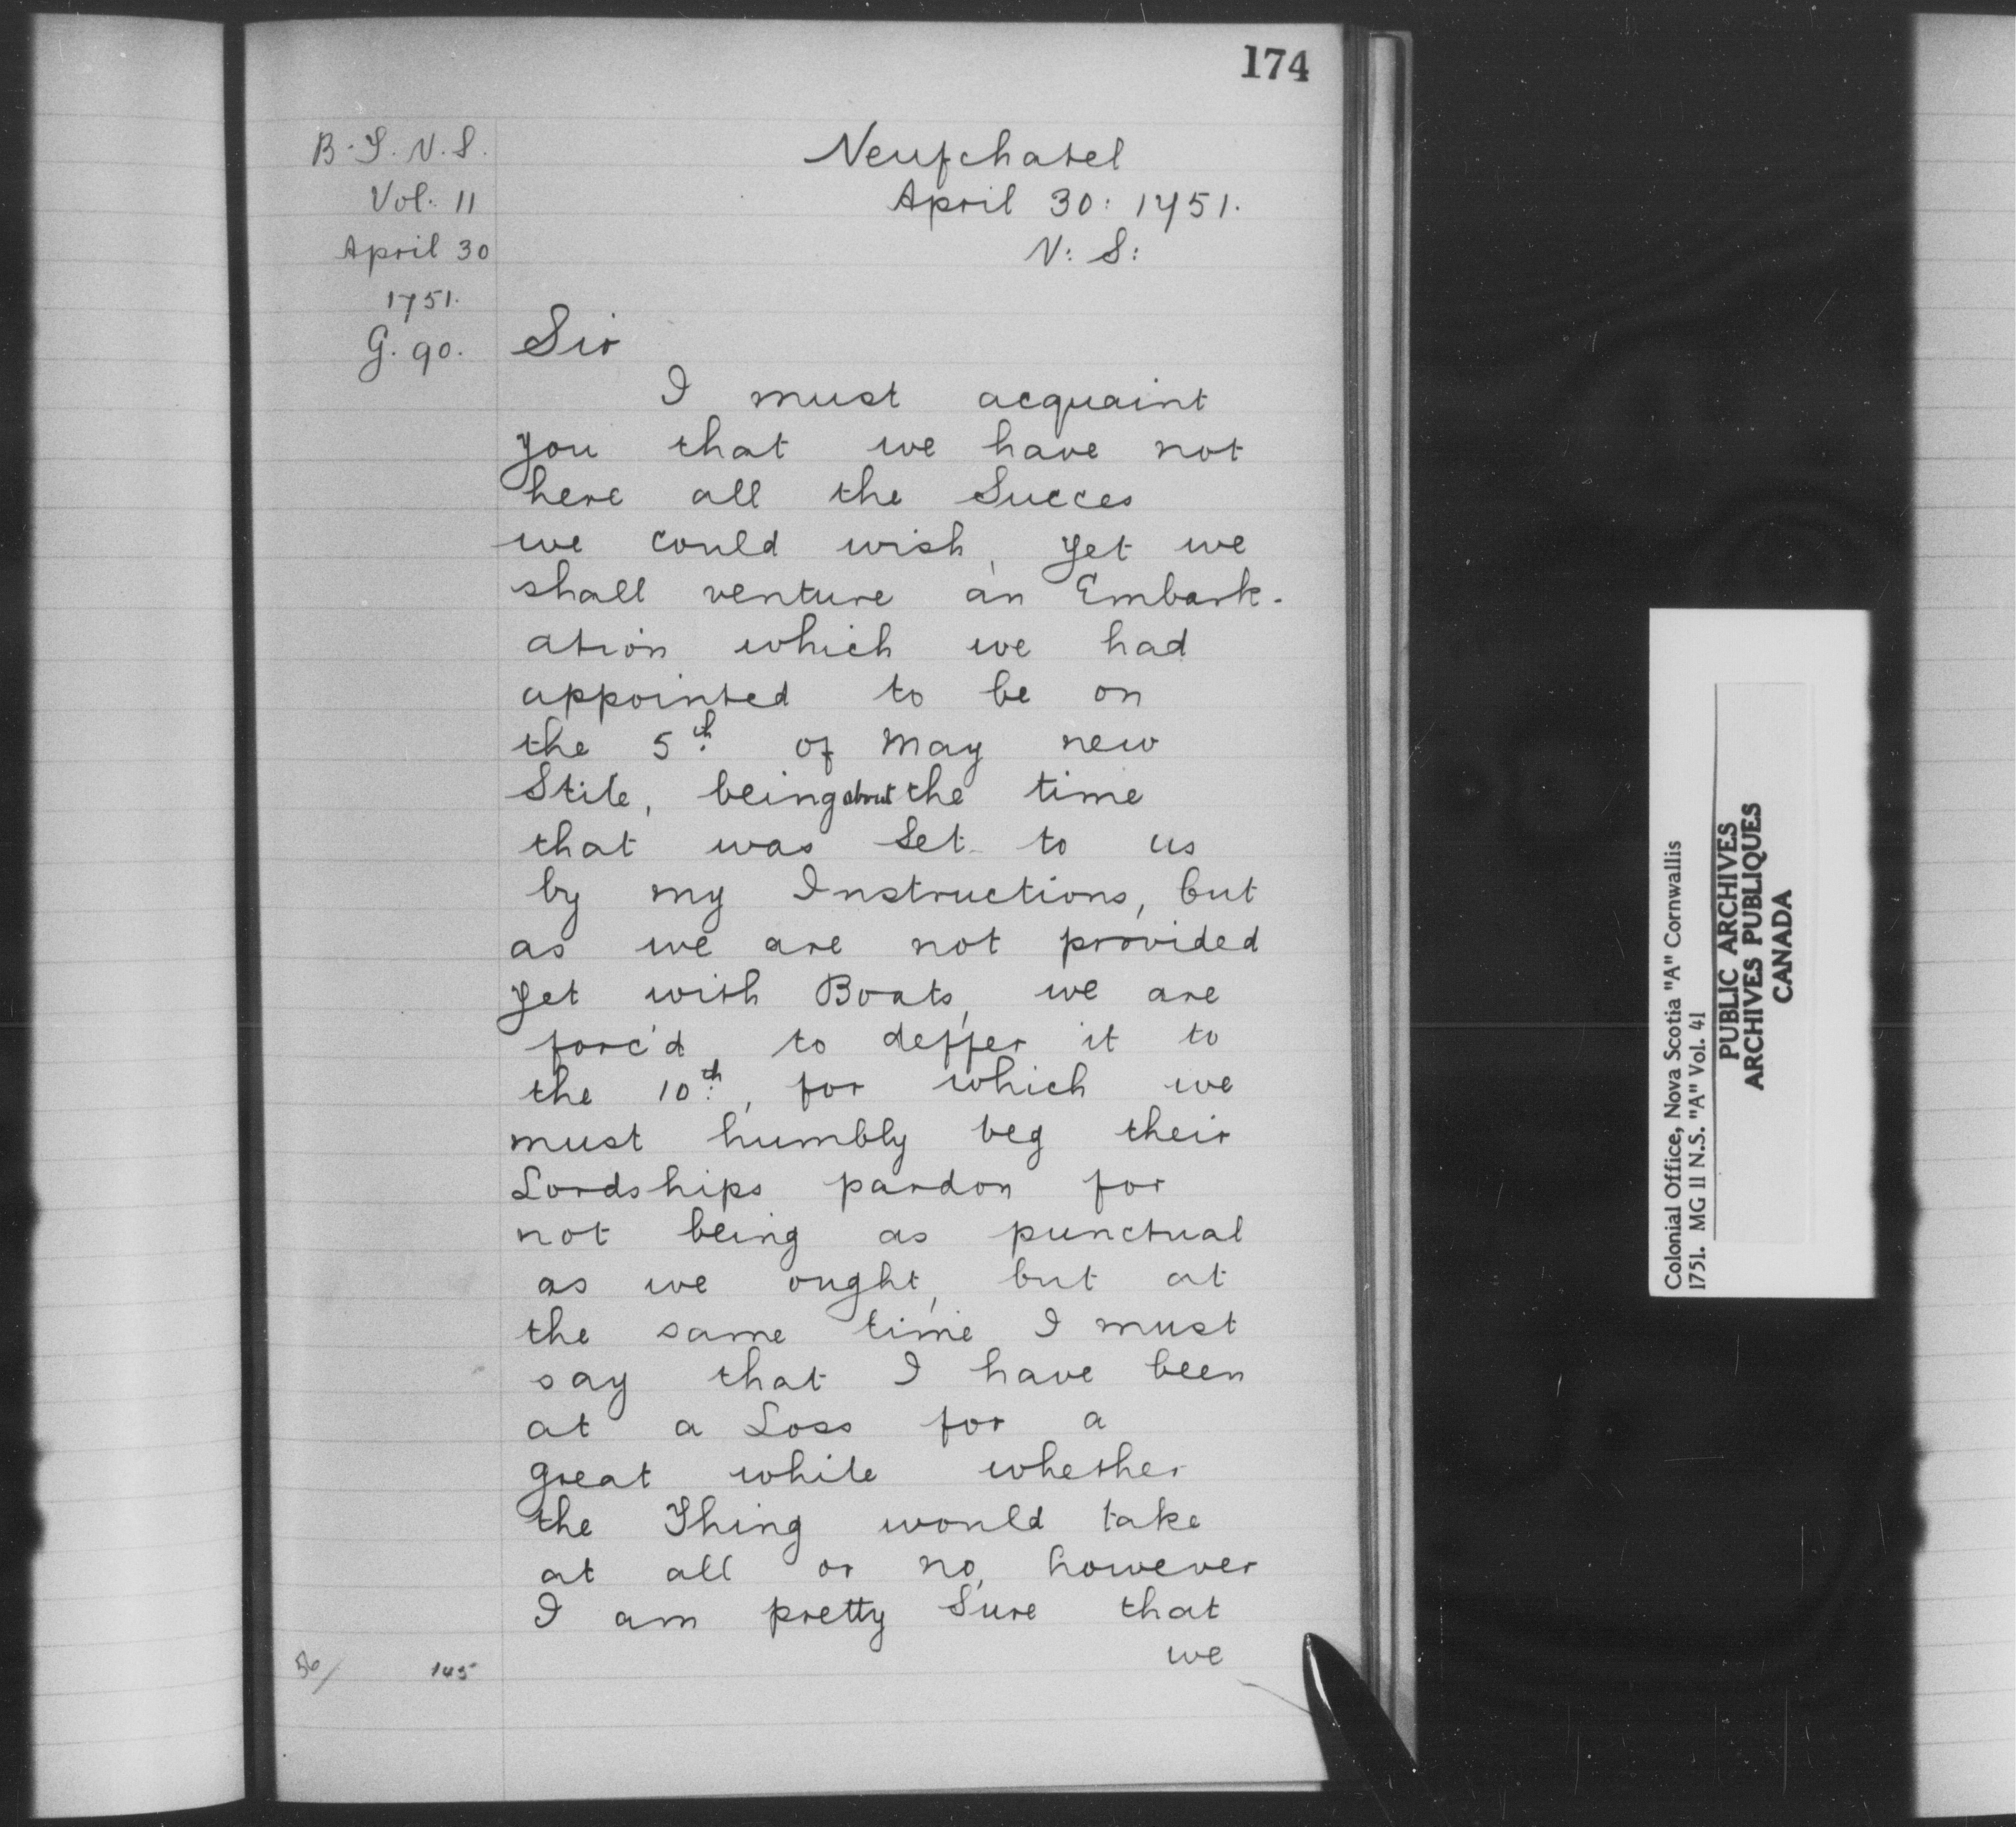 174
B.T.N.S.
Vol. 11
April 30
1751.
G. 90.
Neufchatel
April 30: 1751.
N: S:
Sir
I must acquaint
you that we have not
here all the Succes
we could wish, yet we
shall venture an Embark-
ation which we had
appointed to be on
the 5th of May new
Stile, being about the time
that was Set to us
by my Instructions, but
as we are not provided
yet with Boats, we are
forc'd to deffer it to
the 10th, for which we
must humbly beg their
Lordships pardon for
not being as punctual
as we ought, but at
the same time I must
say that I have been
at a Loss for a
great while whether
the Thing would take
at all or no, however
I am pretty Sure that
we
56/ 145
Colonial Office, Nova Scotia "A" Cornwallis
1751. MG 11 N.S. "A" Vol. 41
PUBLIC ARCHIVES
ARCHIVES PUBLIQUES
CANADA